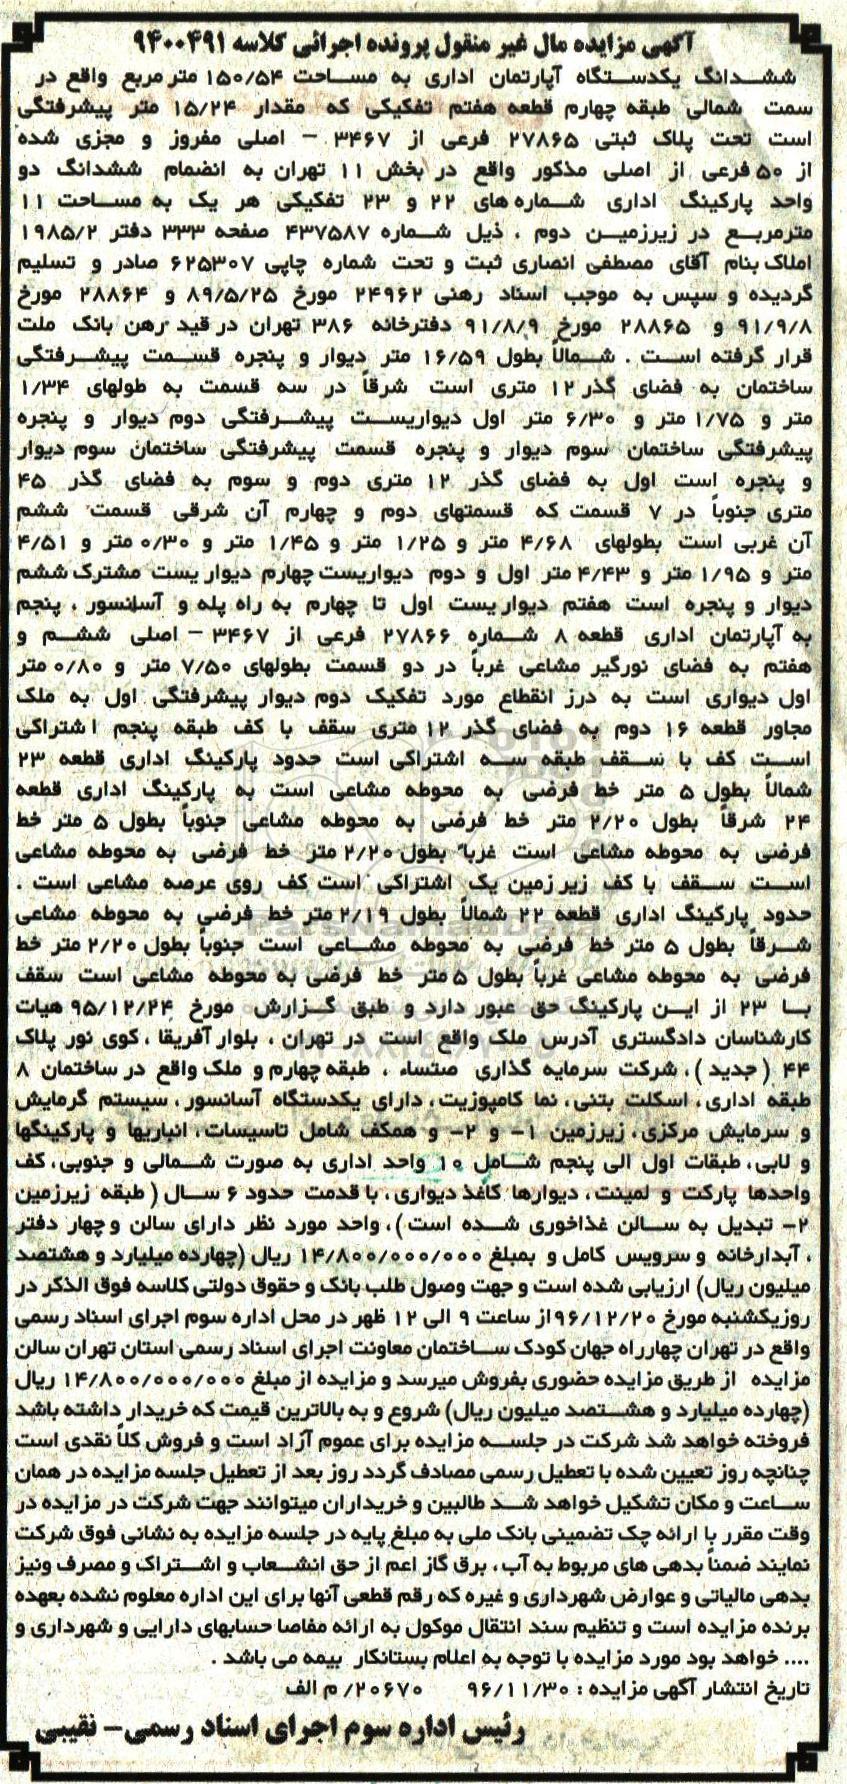 آگهی مزایده مال غیر منقول پرونده اجرائی کلاسه ۹۴۰۰۴۹۱
ششدانگ یکدستگاه آپارتمان اداری به مساحت ۱۵۰/۵۴ متر مربع واقع در
سمت شمالی طبقه چهارم قطعه هفتم تفکیکی که مقدار ۱۵/۲۴ متر پیشرفتگی
است تحت پلاک ثبتی ۲۷۸۶۵ فرعی از ۳۴۶۷ – اصلی مفروز و مجزی شده
از ۵۰ فرعی از اصلی مذکور واقع در بخش ۱۱ تهران به انضمام ششدانگ دو
واحد پارکینگ اداری شماره های ۲۲ و ۲۳ تفکیکی هر یک به مساحت ۱۱
مترمربع در زیرزمین دوم ، ذیل شماره ۴۳۷۵۸۷ صفحه ۳۳۳ دفتر ۱۹۸۵/۲
املاک بنام آقای مصطفی انصاری ثبت و تحت شماره چاپی ۶۲۵۳۰۷ صادر و تسلیم
گردیده و سپس به موجب اسناد رهنی ۲۴۹۶۲ مورخ ۸۹/۵/۲۵ و ۲۸۸۶۴ مورخ
۹۱/۹/۸ و ۲۸۸۶۵ مورخ ۹۱/۸/۹ دفترخانه ۳۸۶ تهران در قید رهن بانک ملت
قرار گرفته است . شمالاً بطول ۱۶/۵۹ متر دیوار و پنجره قسمت پیشرفتگی
ساختمان به فضای گذر ۱۲ متری است شرقاً در سه قسمت به طولهای ۱/۳۴
متر و ۱/۷۵ متر و ۶/۳۰ متر اول دیواریست پیشرفتگی دوم دیوار و پنجره
پیشرفتگی ساختمان سوم دیوار و پنجره قسمت پیشرفتگی ساختمان سوم دیوار
و پنجره است اول به فضای گذر ۱۲ متری دوم و سوم به فضای گذر ۴۵
متری جنوباً در ۷ قسمت که قسمتهای دوم و چهارم آن شرقی قسمت ششم
آن غربی است بطولهای ۴/۶۸ متر و ۱/۲۵ متر و ۱/۴۵ متر و ۰/۳۰ متر و ۴/۵۱
متر و ۱/۹۵ متر و ۴/۴۳ متر اول و دوم دیواریست چهارم دیوار یست مشترک ششم
دیوار و پنجره است هفتم دیوار یست اول تا چهارم به راه پله و آسانسور ، پنجم
به آپارتمان اداری قطعه ۸ شماره ۲۷۸۶۶ فرعی از ۳۴۶۷ – اصلی ششم و
هفتم به فضای نورگیر مشاعی غرباً در دو قسمت بطولهای ۷/۵۰ متر و ۰/۸۰ متر
اول دیواری است به درز انقطاع مورد تفکیک دوم دیوار پیشرفتگی اول به ملک
مجاور قطعه ۱۶ دوم به فضای گذر ۱۲ متری سقف با کف طبقه پنجم اشتراکی
است کف با سقف طبقه سه اشتراکی است حدود پارکینگ اداری قطعه ۲۳
شمالاً بطول ۵ متر خط فرضی به محوطه مشاعی است به پارکینگ اداری قطعه
۲۴ شرقاً بطول ۲/۲۰ متر خط فرضی به محوطه مشاعی جنوباً بطول ۵ متر خط
فرضی به محوطه مشاعی است غرباً بطول ۲/۲۰ متر خط فرضی به محوطه مشاعی
است سقف با کف زیر زمین یک اشتراکی است کف روی عرصه مشاعی است .
حدود پارکینگ اداری قطعه ۲۲ شمالاً بطول ۲/۱۹ متر خط فرضی به محوطه مشاعی
شرقاً بطول ۵ متر خط فرضی به محوطه مشاعی است جنوباً بطول ۲/۲۰ متر خط
فرضی به محوطه مشاعی غرباً بطول ۵ متر خط فرضی به محوطه مشاعی است سقف
با ۲۳ از این پارکینگ حق عبور دارد و طبق گزارش مورخ ۹۵/۱۲/۲۴ هیات
کارشناسان دادگستری آدرس ملک واقع است در تهران ، بلوار آفریقا ، کوی نور پلاک
۴۴ ( جدید ) ، شرکت سرمایه گذاری صتساء ، طبقه چهارم و ملک واقع در ساختمان ۸
طبقه اداری ، اسکلت بتنی ، نما کامپوزیت ، دارای یکدستگاه آسانسور ، سیستم گرمایش
و سرمایش مرکزی ، زیرزمین ۱- و ۲- و همکف شامل تاسیسات ، انباریها و پارکینگها
و لابی ، طبقات اول الی پنجم شامل ۱۰ واحد اداری به صورت شمالی و جنوبی ، کف
واحدها پارکت و لمینت ، دیوارها کاغذ دیواری ، با قدمت حدود ۶ سال ( طبقه زیرزمین
۲- تبدیل به سالن غذاخوری شده است ) ، واحد مورد نظر دارای سالن و چهار دفتر
، آبدارخانه و سرویس کامل و بمبلغ ۱۴/۸۰۰/۰۰۰/۰۰۰ ریال (چهارده میلیارد و هشتصد
میلیون ریال) ارزیابی شده است و جهت وصول طلب بانک و حقوق دولتی کلاسه فوق الذکر در
روز یکشنبه مورخ ۹۶/۱۲/۲۰ از ساعت ۹ الی ۱۲ ظهر در محل اداره سوم اجرای اسناد رسمی
واقع در تهران چهارراه جهان کودک ساختمان معاونت اجرای اسناد رسمی استان تهران سالن
مزایده از طریق مزایده حضوری بفروش میرسد و مزایده از مبلغ ۱۴/۸۰۰/۰۰۰/۰۰۰ ریال
(چهارده میلیارد و هشتصد میلیون ریال) شروع و به بالاترین قیمت که خریدار داشته باشد
فروخته خواهد شد شرکت در جلسه مزایده برای عموم آزاد است و فروش کلاً نقدی است
چنانچه روز تعیین شده با تعطیل رسمی مصادف گردد روز بعد از تعطیل جلسه مزایده در همان
ساعت و مکان تشکیل خواهد شد طالبین و خریداران میتوانند جهت شرکت در مزایده در
وقت مقرر با ارائه چک تضمینی بانک ملی به مبلغ پایه در جلسه مزایده به نشانی فوق شرکت
نمایند ضمناً بدهی های مربوط به آب ، برق گاز اعم از حق انشعاب و اشتراک و مصرف ونیز
بدهی مالیاتی و عوارض شهرداری و غیره که رقم قطعی آنها برای این اداره معلوم نشده بعهده
برنده مزایده است و تنظیم سند انتقال موکول به ارائه مفاصا حسابهای دارایی و شهرداری و
.... خواهد بود مورد مزایده با توجه به اعلام بستانکار بیمه می باشد .
تاریخ انتشار آگهی مزایده : ۹۶/۱۱/۳۰ ۲۰۶۷۰/ م الف
رئیس اداره سوم اجرای اسناد رسمی- نقیبی